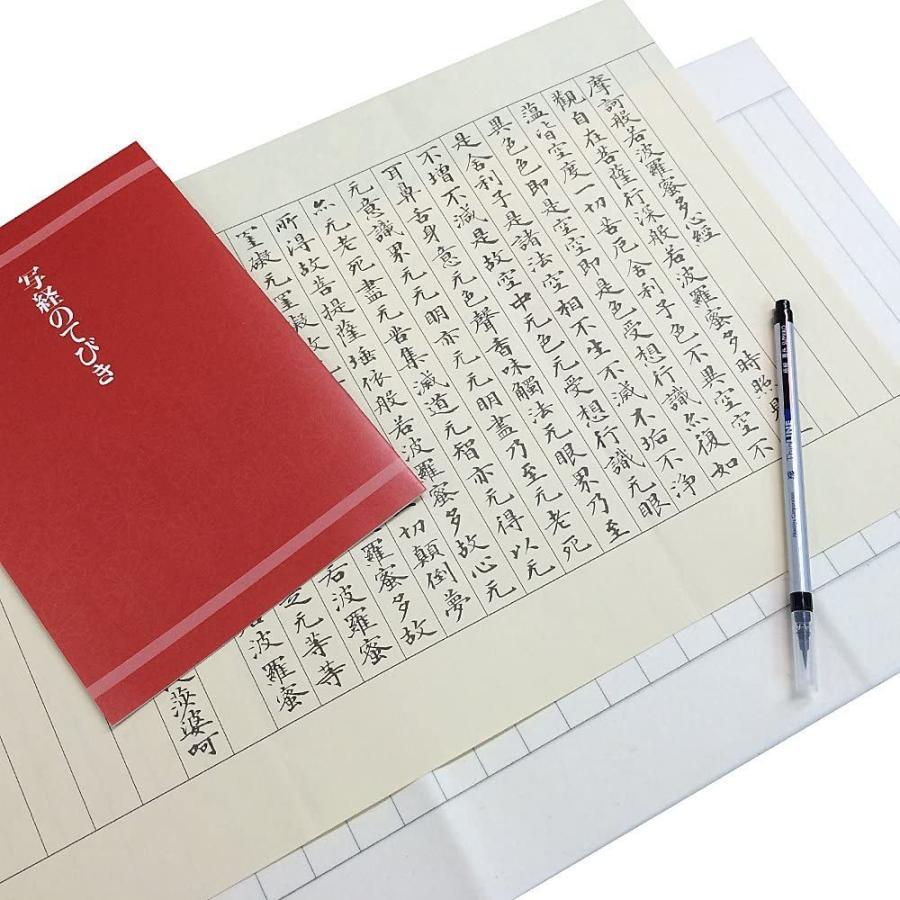 摩訶般若波羅蜜多心經
觀自在菩薩行深般若波羅蜜多時照見
蘊皆空度一切苦厄舍利子色不異空空不
異色色即是空空即是色受想行識亦復如
是舍利子是諸法空相不生不滅不垢不淨
不增不減是故空中无色无受想行識无眼
耳鼻舌身意无色聲香味觸法无眼界乃至
无意識界无无明亦无无明盡乃至无老死
亦无老死盡无苦集滅道无智亦无得以无
所得故菩提薩埵依般若波羅蜜多故心无
罣礙无罣礙故 切顛倒夢
羅蜜多故
若波羅蜜
是无等等
若波羅蜜
莎婆呵
写経のてびき
LINE